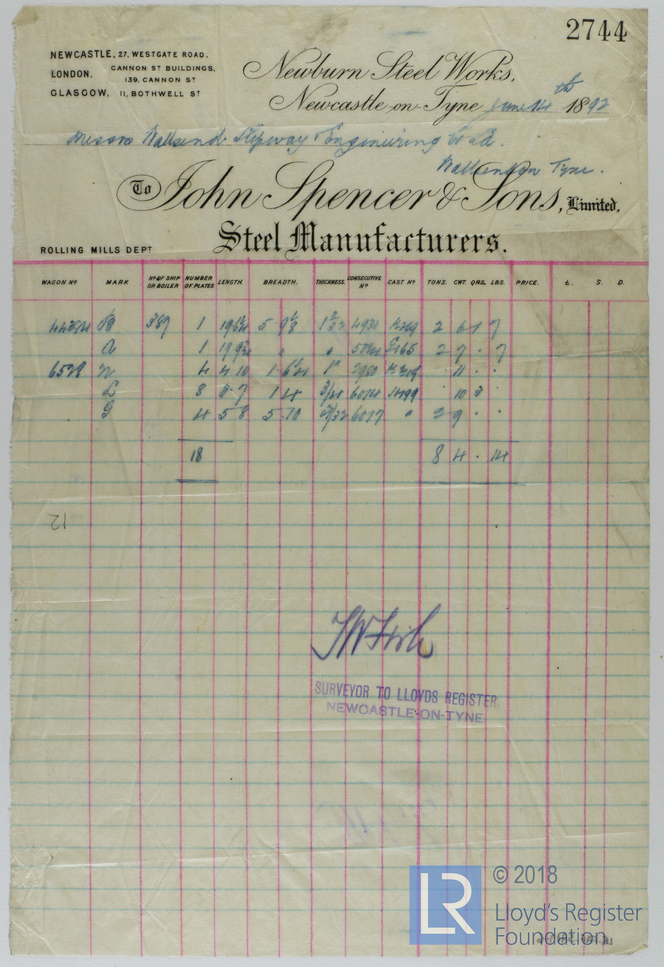 2744
NEWCASTLE, 27, WESTGATE ROAD.
LONDON, CANNON ST BUILDINGS, 139, CANNON ST
GLASGOW, 11, BOTHWELL ST
Newburn Steel Works,
Newcastle-on-Tyne June 14th 1892
Messrs Wallsend Slipway & Engineering Co Ld.
Wallsend on Tyne.
To John Spencer & Sons, Limited,
Steel Manufacturers.
ROLLING MILLS DEPT
WAGON No MARK No OF SHIP OR BOILER NUMBER OF PLATES LENGTH. BREADTH. THICKNESS. CONSECUTIVE No CAST No TONS. CWT. QRS. LBS. PRICE. £. S. D.
B 387 1 5 4931 2 6 1 7
1 2 7 . 7
6528 4 4 10 1 6½ 1" . 11 . .
L 8 8 7 1 4 6014 . 10 3 .
G 4 5 8 5 10 6017 " 2 9 . .
18 8 4 . 14
12
SURVEYOR TO LLOYDS REGISTER
NEWCASTLE-ON-TYNE.
LR
© 2018
Lloyd's Register
Foundation